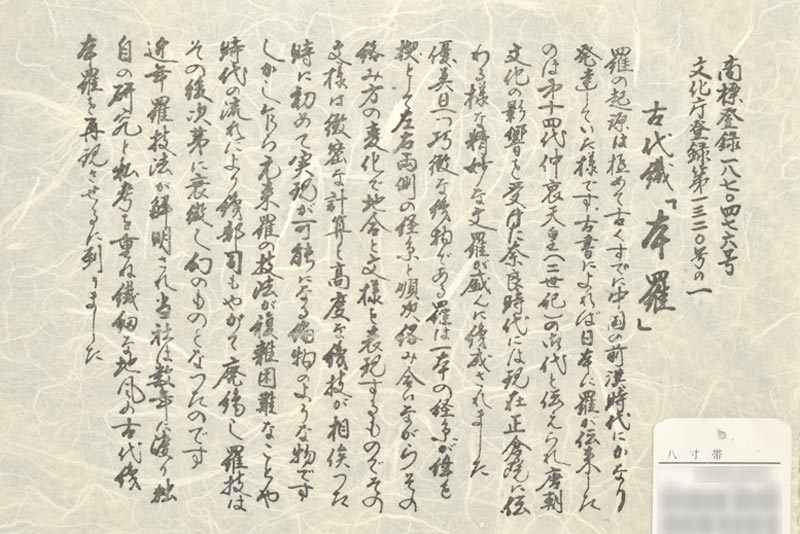 商標登録一八七〇四七六号
文化庁登録第一三二〇号の一
古代織「本羅」
羅の起源は極めて古くすでに中国の前漢時代にかなり
発達していた様です。古書によれば日本に羅が伝来した
のは第十四代仲哀天皇(二世紀)の御代と伝えられ唐朝
文化の影響を受けた奈良時代には現在正倉院に伝
わる様な精妙な文羅が盛んに織成されました
優美且つ巧緻な織物である羅は一本の経糸が緯を
楔として左右両側の経糸と順次絡み合いながらその
絡み方の変化で地合と文様を表現するものでその
文様は緻密な計算と高度な織技が相俟った
時に初めて実現が可能になる編物のような物です
しかし乍ら元来羅の技法が複雑困難なことや
時代の流れにより織部司もやがて廃絶し羅技は
その後次第に衰微し幻のものとなったのです
近年羅技法が解明され当社は数年に渡り独
自の研究と私考を重ね繊細な地風の古代織
本羅を再現させるに到りました
八寸帯